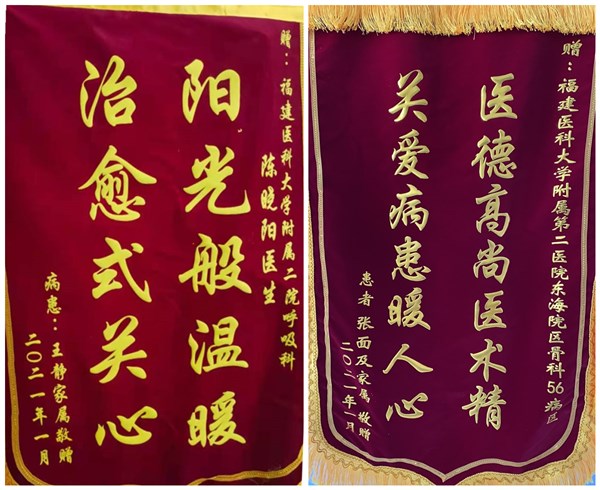 赠：福建医科大学附属二院呼吸科
陈晓阳医生
阳光般温暖
治愈式关心
病患：王静家属敬赠
二〇二一年一月
赠：福建医科大学附属第二医院东海院区骨科56病区
医德高尚医术精
关爱病患暖人心
患者 张面及家属敬赠
二〇二一年一月